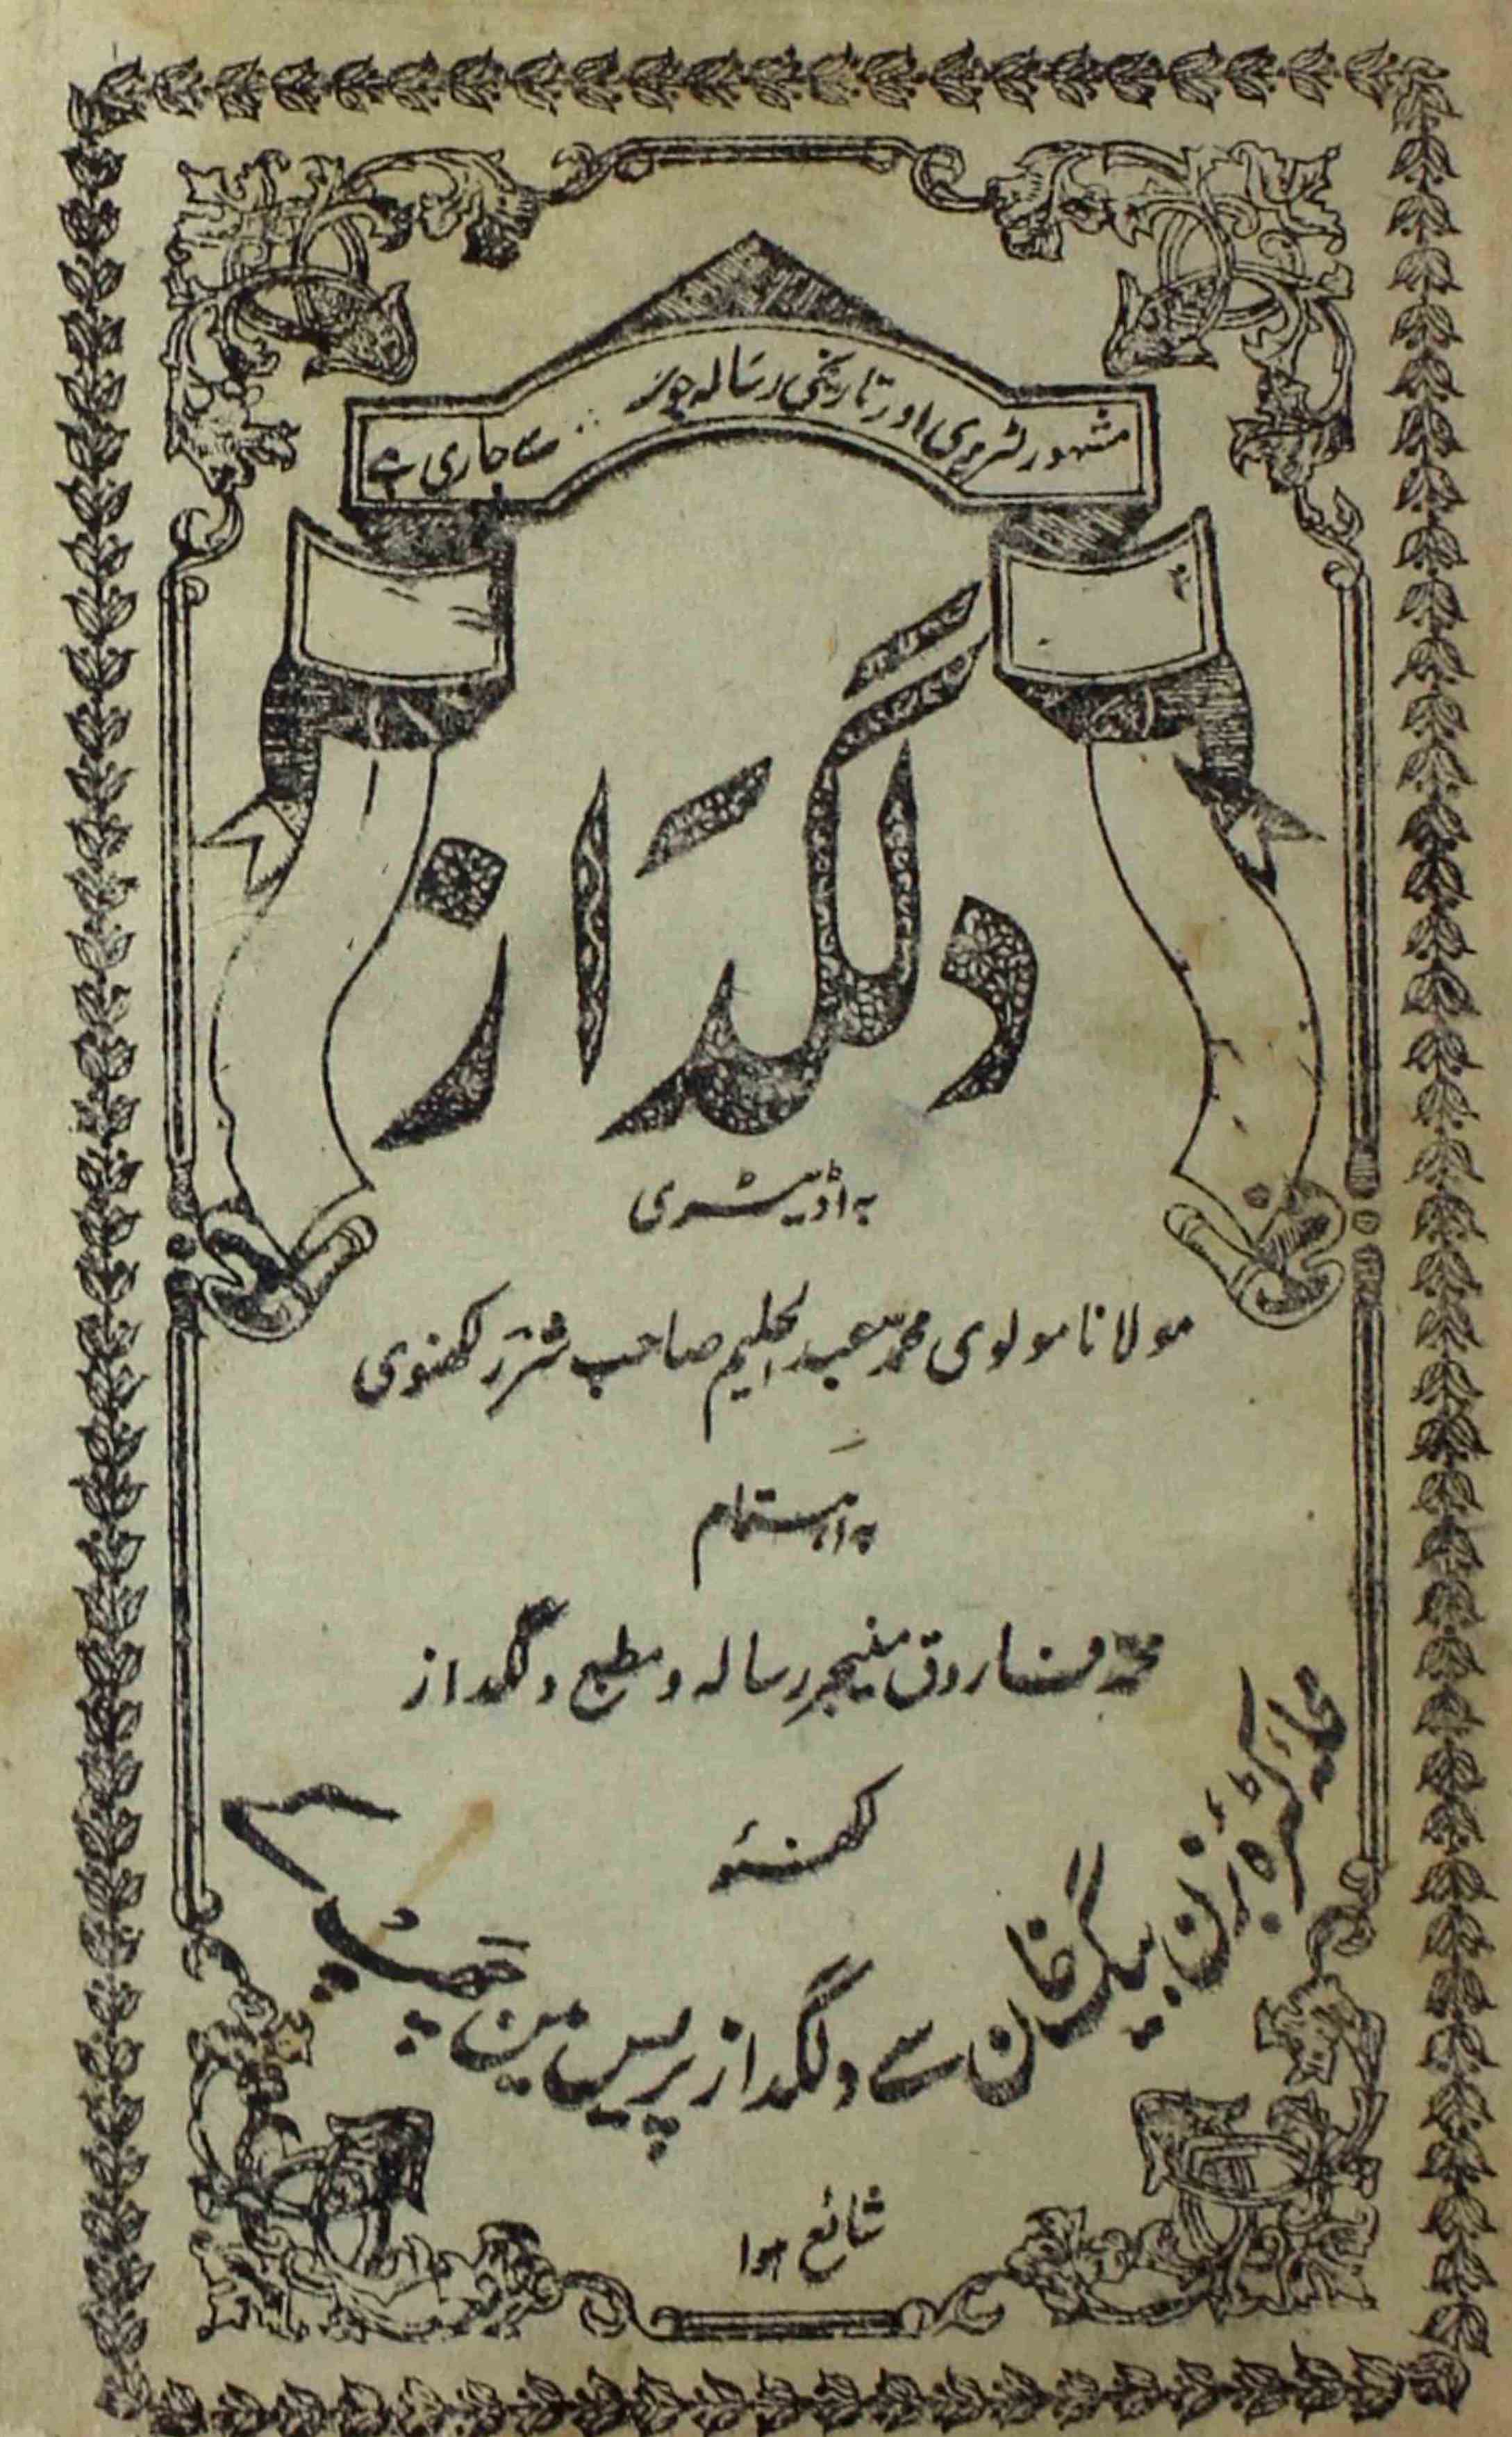 مشہور لٹریری اور تاریخی رسالہ جو سنہ ... سے جاری ہے
دلگداز
بہ اڈیٹری
مولانا مولوی محمد عبد الحلیم صاحب شرر لکھنوی
بہ اہتمام
محمد فاروق منیجر رسالہ و مطبع دلگداز
لکھنؤ
محلہ کٹرہ بزن بیگ خان سے دلگداز پریس مین چھپ کے
شائع ہوا